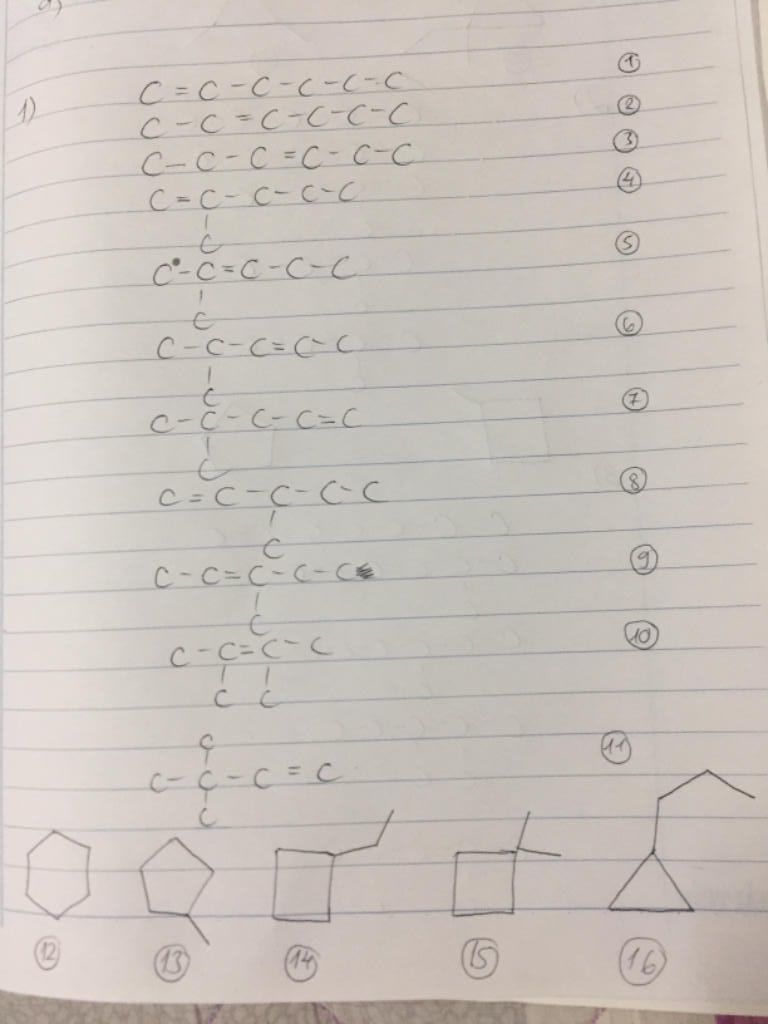 1) C = C - C - C - C - C ①
C - C = C - C - C - C ②
C - C - C = C - C - C ③
C = C - C - C - C ④
|
C
C - C = C - C - C ⑤
|
C
C - C - C = C - C ⑥
|
C
C - C - C - C = C ⑦
|
C
C = C - C - C - C ⑧
|
C
C - C = C - C - C ⑨
|
C
C - C = C - C ⑩
| |
C C
C ⑪
|
C - C - C = C
|
C
⑫ ⑬ ⑭ ⑮ ⑯